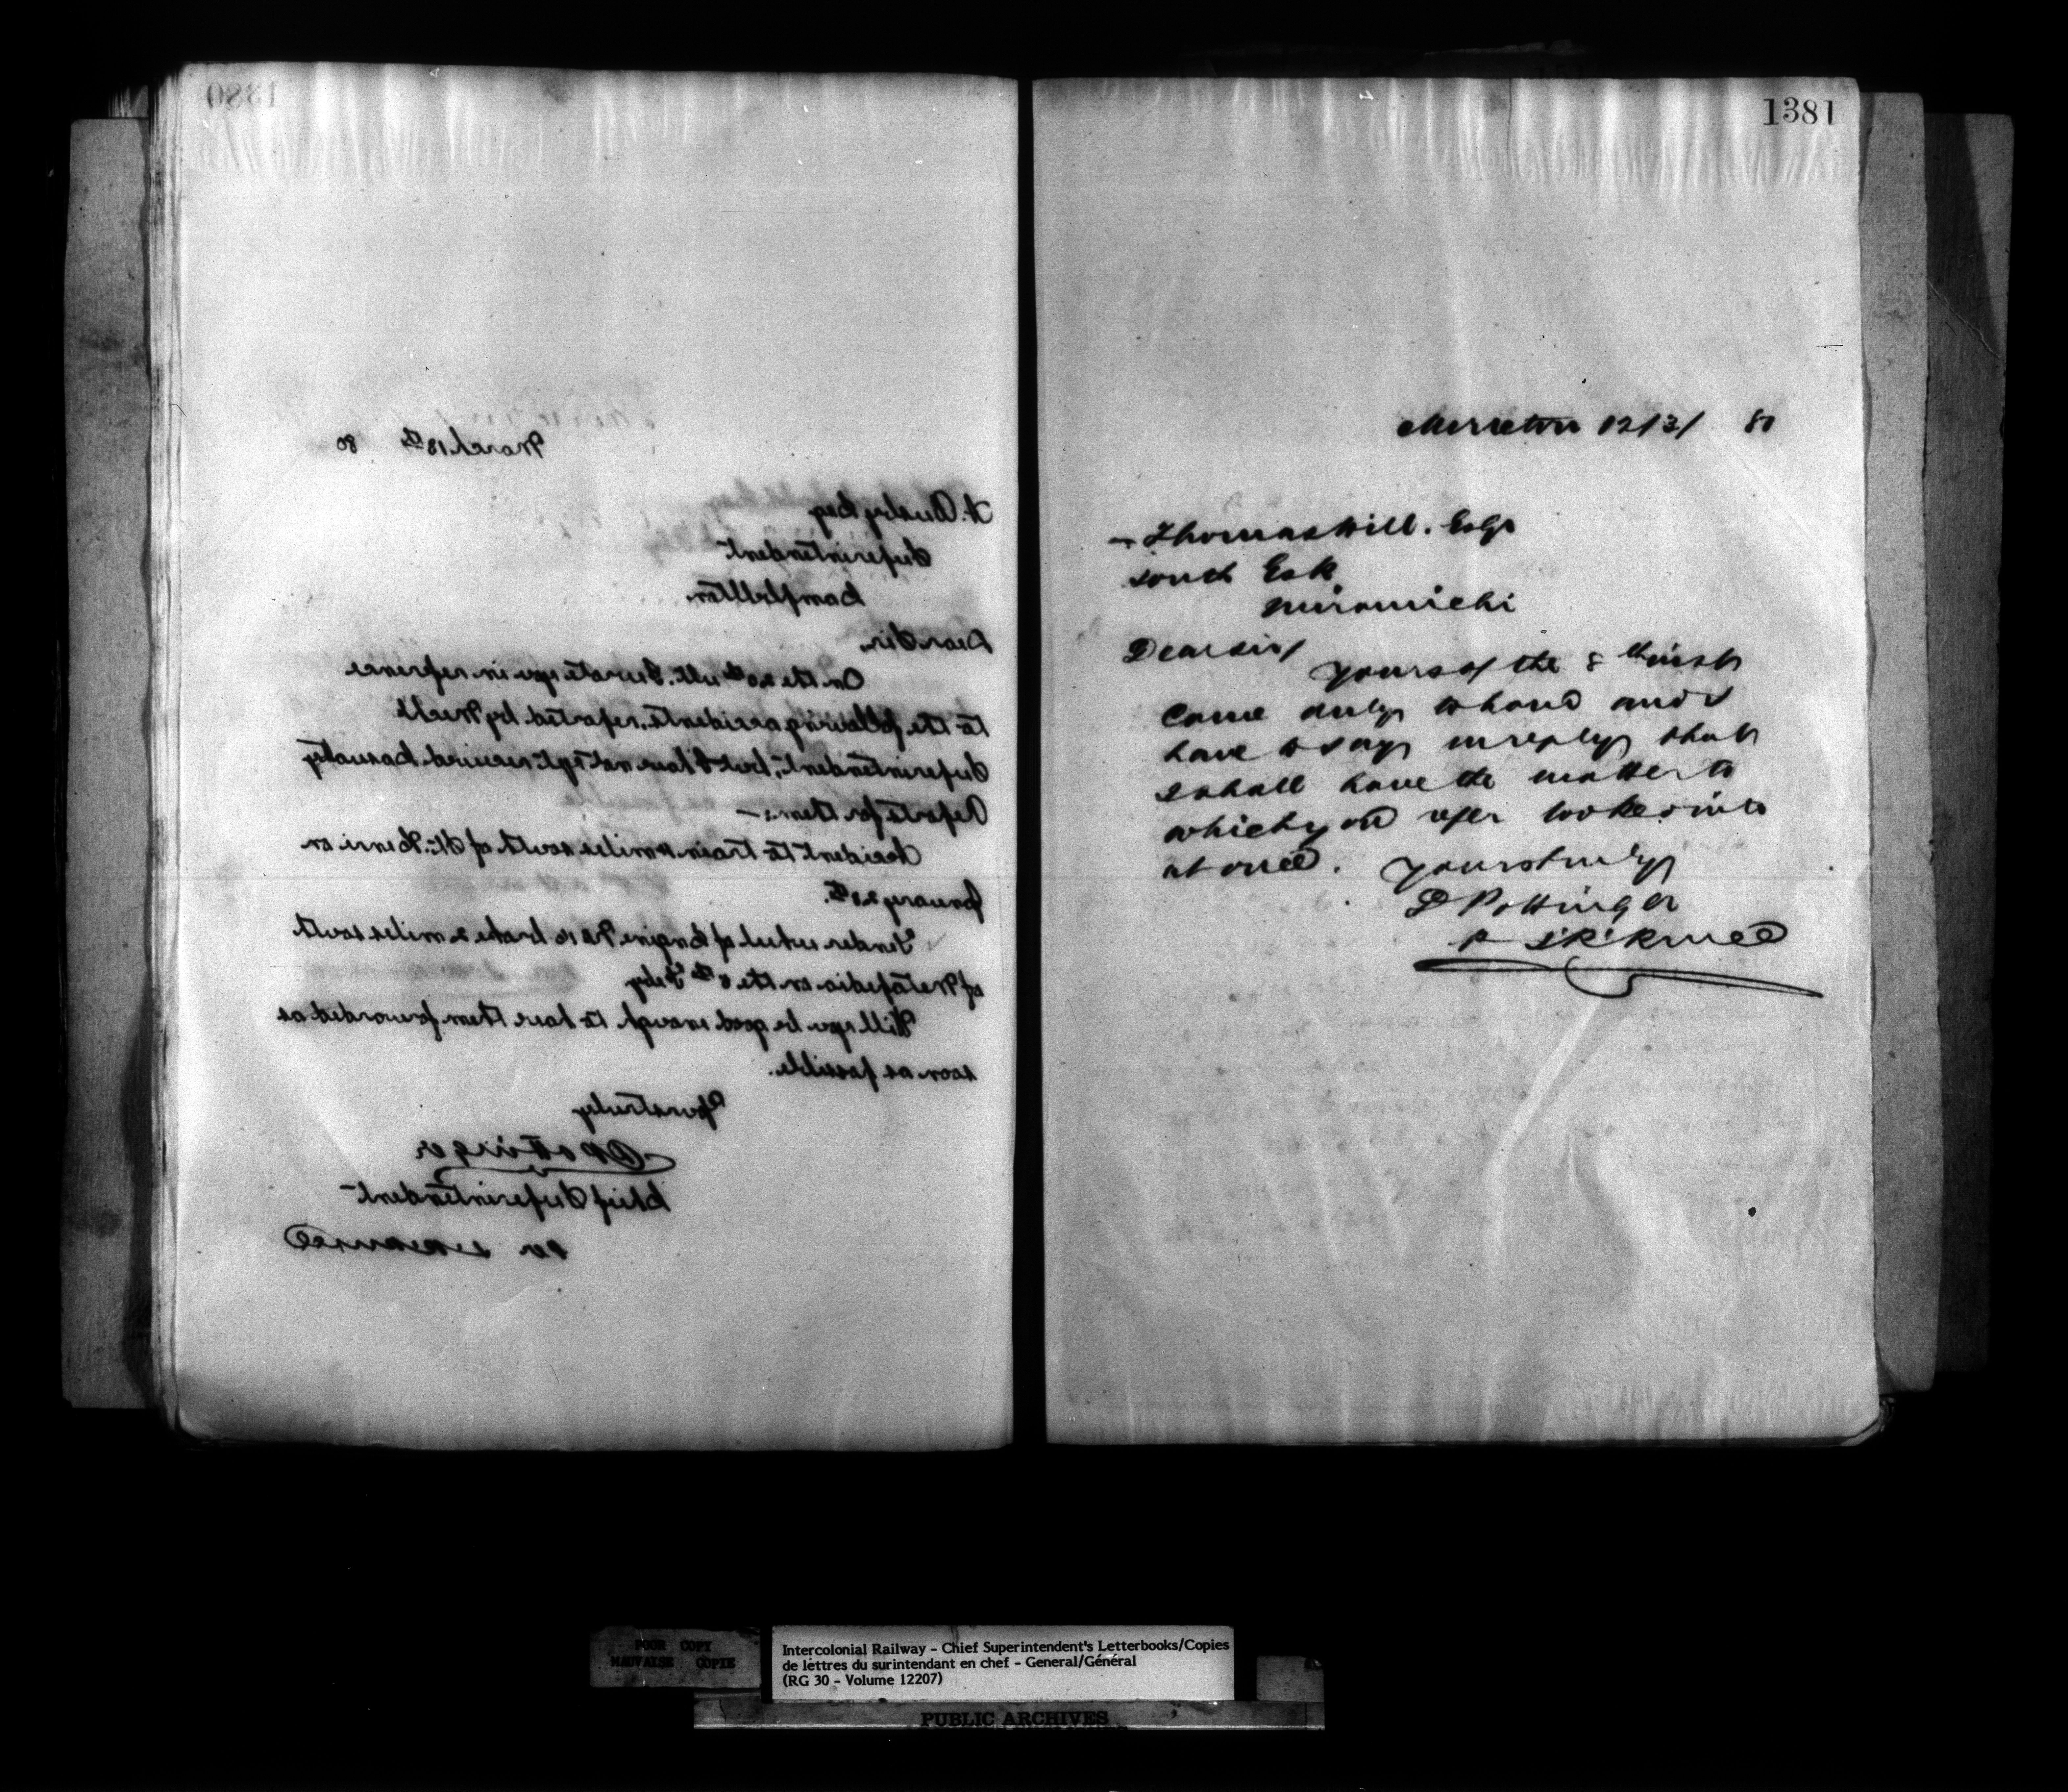 1380
March 13th 80
A. Busby Esq
Superintendent
Campbellton.
Dear Sir,
On the 20th ult. I wrote you in reference
to the following accidents, reported by Mech
Superintendent, but have not yet received Casualty
Reports for them:—
Accident to train 4 miles south of St. Fabien on
January 28th.
Tender wheel of Engine No 10 broke 2 miles south
of Metapedia on the 8th Feby
Will you be good enough to have them forwarded as
soon as possible.
Yours truly
D Pottinger
Chief Superintendent
1381
Moncton 12/3/ 80
Thomas Hill. Esqr
South Esk
Miramichi
Dear Sir/
Yours of the 8th inst
came duly to hand and I
have to say in reply that
I shall have the matter to
which you refer looked into
at once. Yours truly
D Pottinger
POOR COPY
MAUVAISE COPIE
Intercolonial Railway - Chief Superintendent's Letterbooks/Copies
de lettres du surintendant en chef - General/Général
(RG 30 - Volume 12207)
PUBLIC ARCHIVES